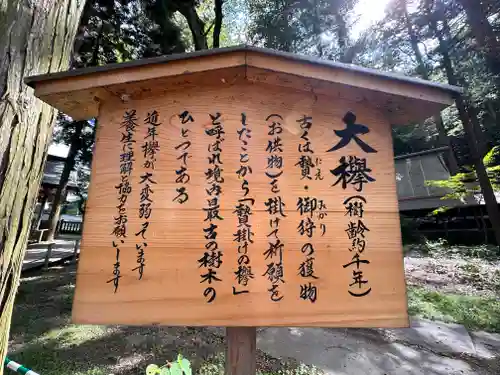 大欅(樹齢約千年)
古くは贄・御狩の獲物
にえ
みかり
(お供物)を掛けて祈願を
したことから「贄掛けの欅」
と呼ばれ境内最古の樹木の
ひとつである
近年、欅が大変弱っています
養生に理解ご協力をお願いします